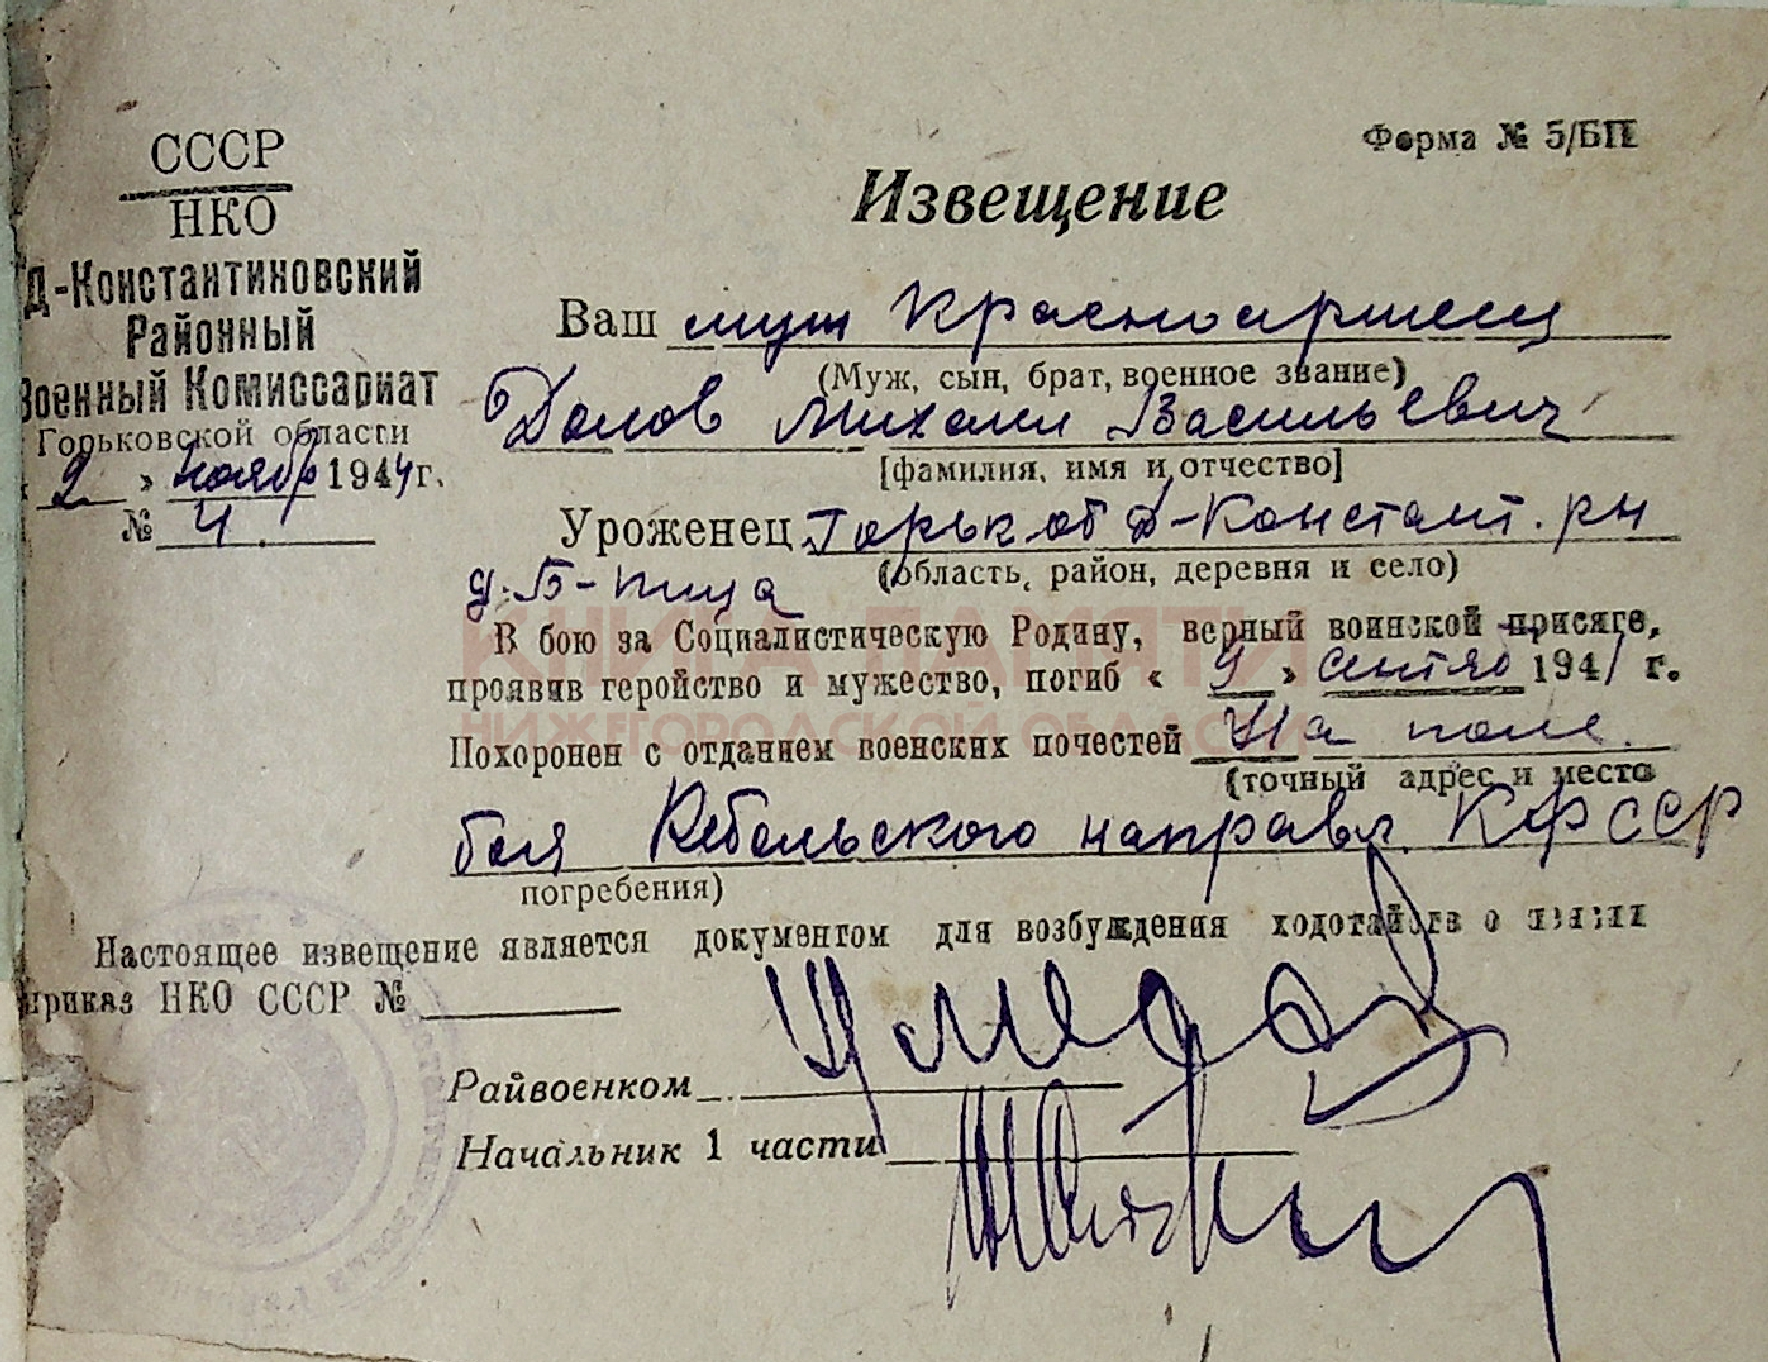 СССР
НКО
Д-Константиновский
Районный
Военный Комиссариат
Горьковской области
2 » ноябр 1944 г.
№ 4
Форма № 5/БП
Извещение
Ваш муж красноармеец
(Муж, сын, брат, военное звание)
Долов Михаил Васильевич
[фамилия, имя и отчество]
Уроженец Горьк об Д-Констант. рн
(область, район, деревня и село)
д. Б-пица
В бою за Социалистическую Родину, верный воинской присяге,
проявив геройство и мужество, погиб « 9 » сентяб 1941 г.
Похоронен с отданием военских почестей На поле
(точный адрес и место
боя Ребольского направл. КФССР
погребения)
Настоящее извещение является документом для возбуждения ходотайств о пенсии
приказ НКО СССР №
Райвоенком
Начальник 1 части
КНИГА ПАМЯТИ
НИЖЕГОРОДСКОЙ ОБЛАСТИ